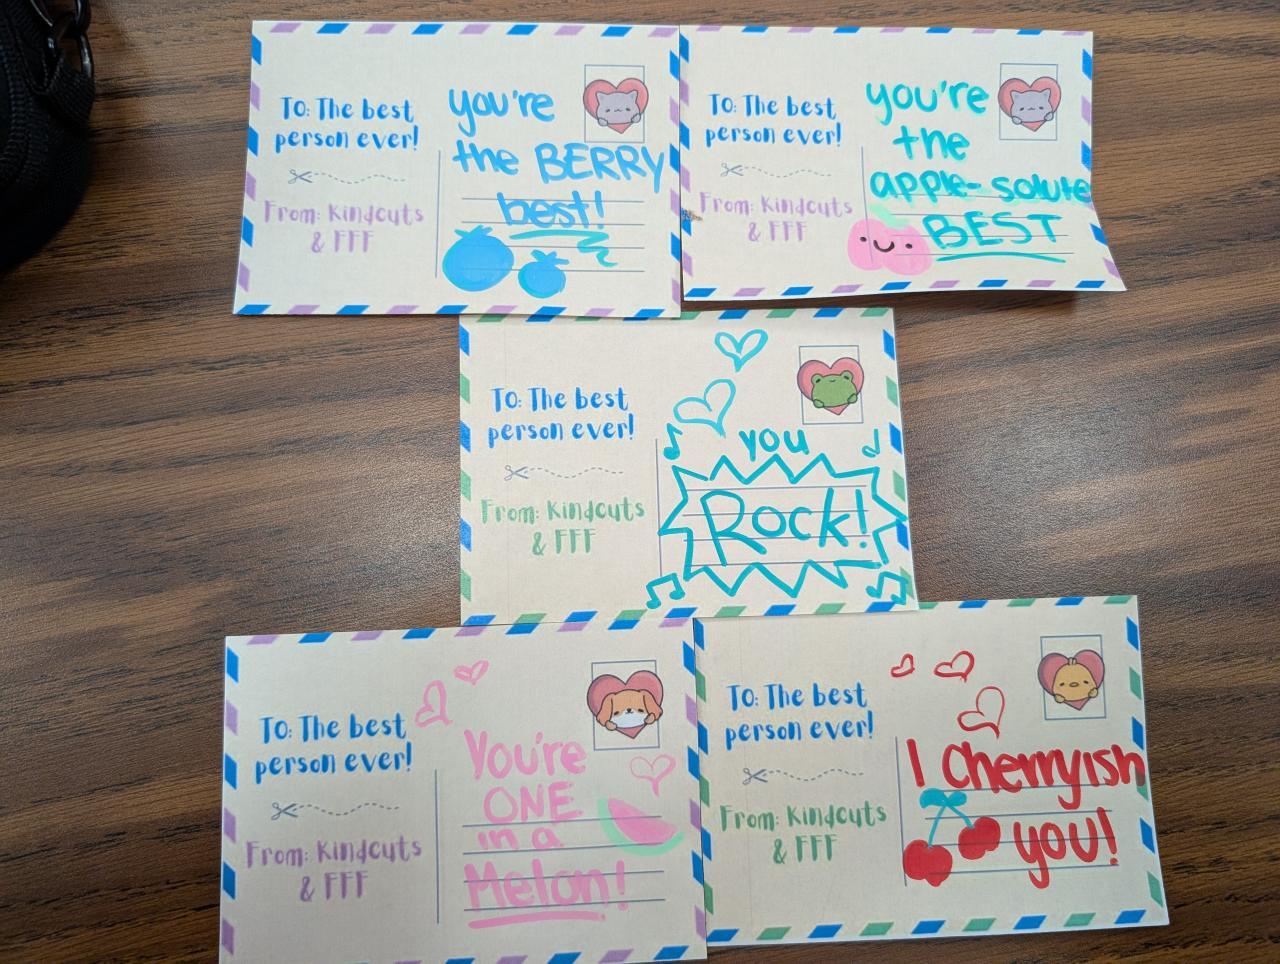 To: The best
person ever!
From: Kindcuts
& FFF
you're
the BERRY
best!
To: The best
person ever!
From: Kindcuts
& FFF
you're
the
apple-solute
BEST
To: The best
person ever!
From: Kindcuts
& FFF
you
Rock!
To: The best
person ever!
From: Kindcuts
& FFF
You're
ONE
in a
Melon!
To: The best
person ever!
From: Kindcuts
& FFF
I Cherryish
you!